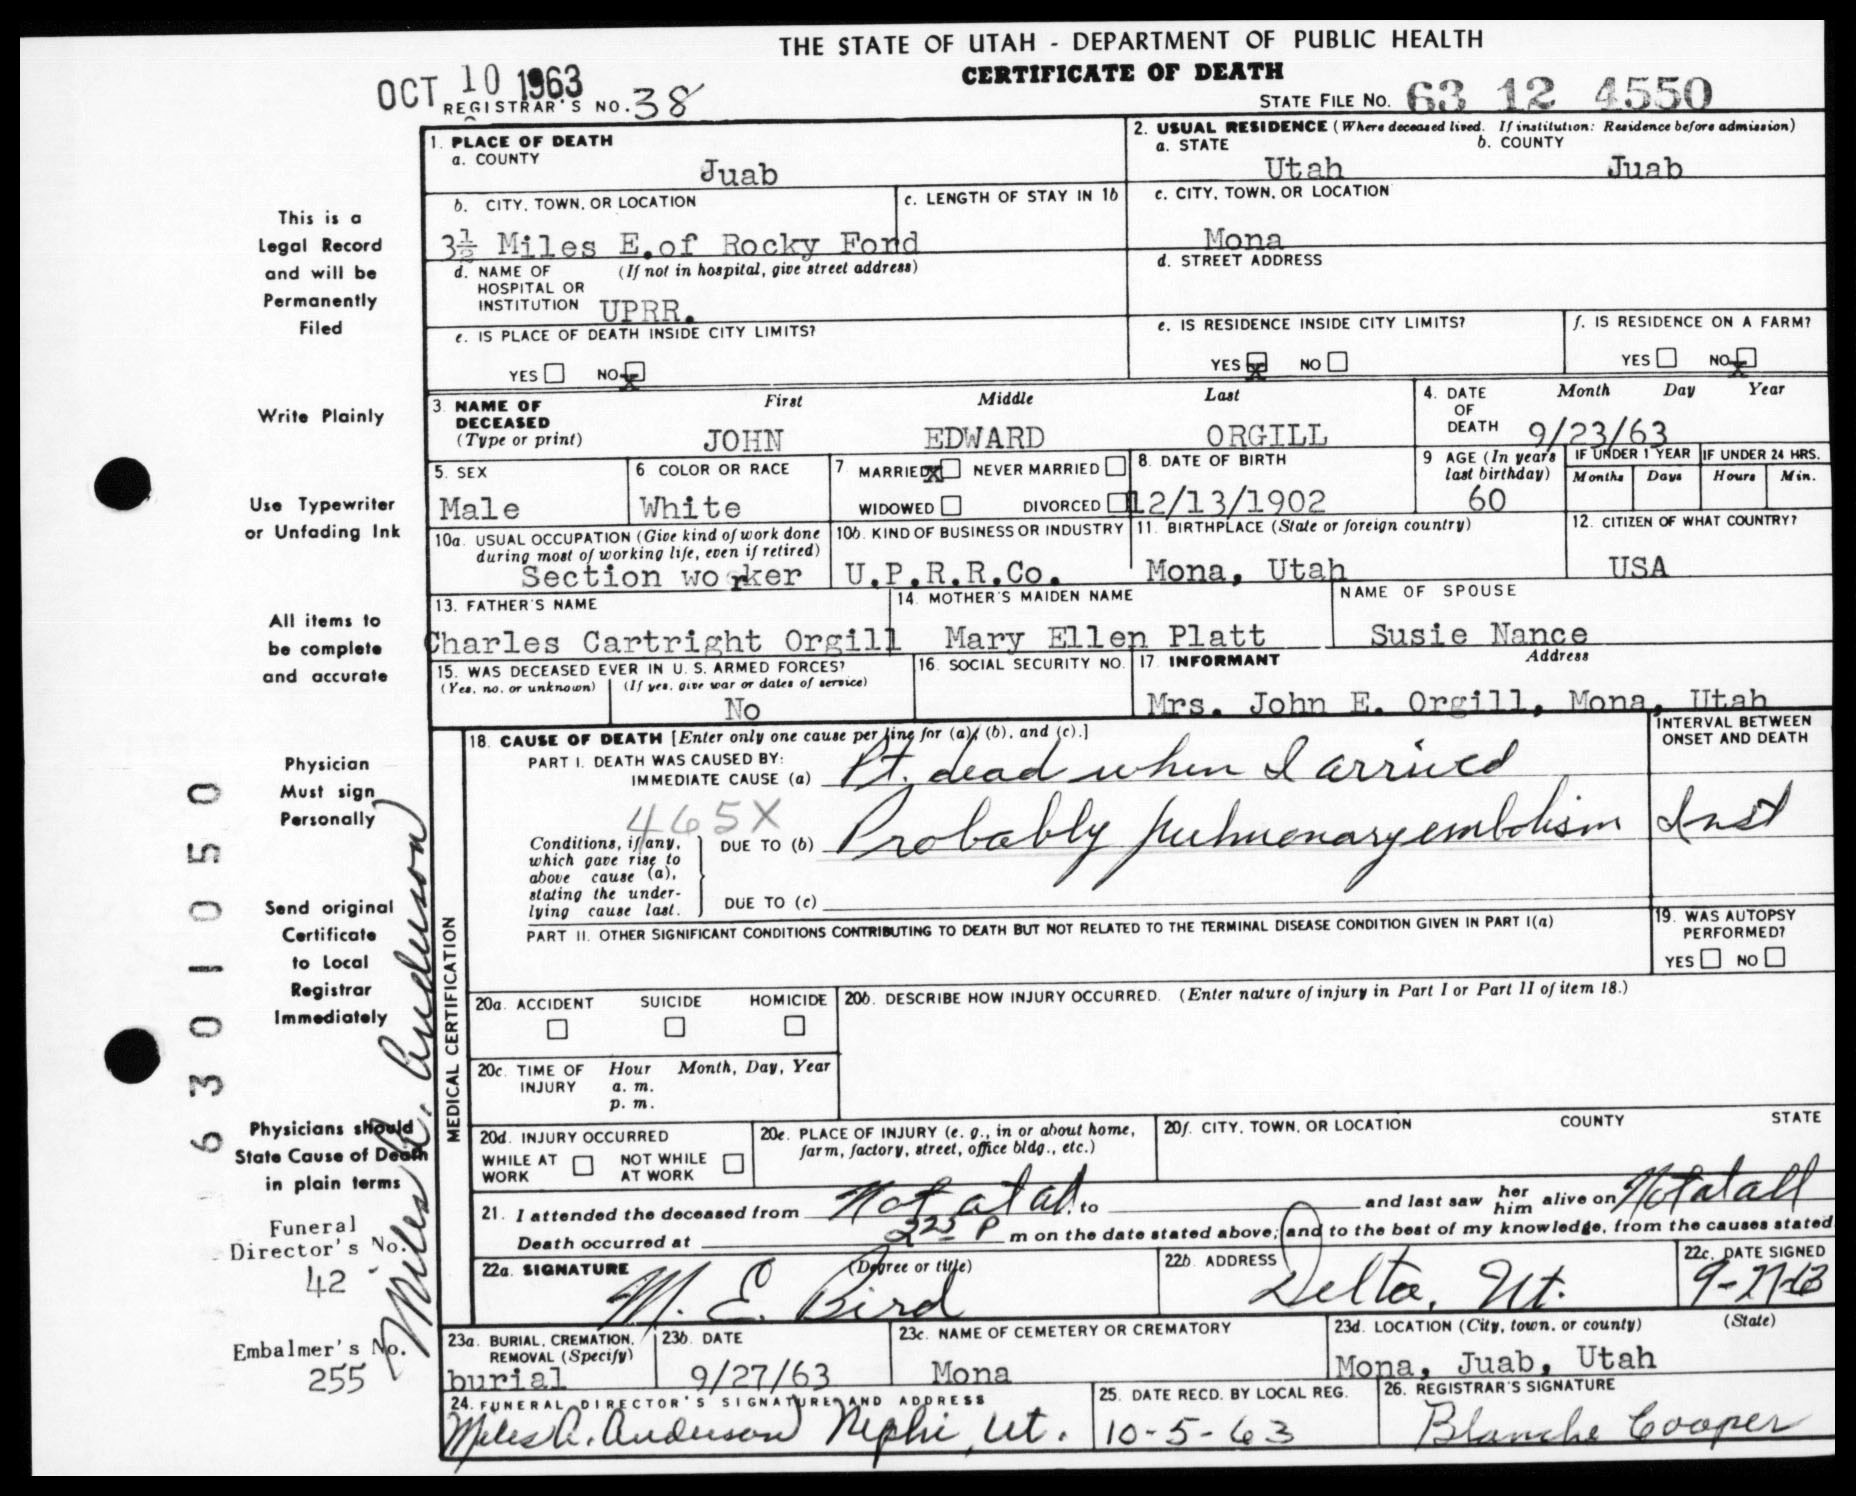 THE STATE OF UTAH - DEPARTMENT OF PUBLIC HEALTH
CERTIFICATE OF DEATH
OCT 10 1963
REGISTRAR'S NO. 38
STATE FILE NO. 63 12 4550
1. PLACE OF DEATH
a. COUNTY
Juab
2. USUAL RESIDENCE (Where deceased lived. If institution: Residence before admission)
a. STATE b. COUNTY
Utah Juab
b. CITY, TOWN, OR LOCATION
3½ Miles E.of Rocky Ford
c. LENGTH OF STAY IN 1b
c. CITY, TOWN, OR LOCATION
Mona
d. NAME OF (If not in hospital, give street address)
HOSPITAL OR
INSTITUTION UPRR.
d. STREET ADDRESS
e. IS PLACE OF DEATH INSIDE CITY LIMITS?
YES NO X
e. IS RESIDENCE INSIDE CITY LIMITS?
YES X NO
f. IS RESIDENCE ON A FARM?
YES NO X
3. NAME OF
DECEASED
(Type or print)
First Middle Last
JOHN EDWARD ORGILL
4. DATE
OF
DEATH
Month Day Year
9/23/63
5. SEX
Male
6 COLOR OR RACE
White
7 MARRIED X NEVER MARRIED
WIDOWED DIVORCED
8. DATE OF BIRTH
12/13/1902
9 AGE (In years
last birthday)
60
IF UNDER 1 YEAR
Months Days
IF UNDER 24 HRS.
Hours Min.
10a. USUAL OCCUPATION (Give kind of work done
during most of working life, even if retired)
Section worker
10b. KIND OF BUSINESS OR INDUSTRY
U.P.R.R.Co.
11. BIRTHPLACE (State or foreign country)
Mona, Utah
12. CITIZEN OF WHAT COUNTRY?
USA
13. FATHER'S NAME
Charles Cartright Orgill
14. MOTHER'S MAIDEN NAME
Mary Ellen Platt
NAME OF SPOUSE
Susie Nance
15. WAS DECEASED EVER IN U. S. ARMED FORCES?
(Yes, no, or unknown) (If yes, give war or dates of service)
No
16. SOCIAL SECURITY NO.
17. INFORMANT Address
Mrs. John E. Orgill, Mona, Utah
MEDICAL CERTIFICATION
18. CAUSE OF DEATH [Enter only one cause per line for (a), (b), and (c).]
PART I. DEATH WAS CAUSED BY:
IMMEDIATE CAUSE (a) Pt. dead when I arrived
INTERVAL BETWEEN
ONSET AND DEATH
465X
Conditions, if any,
which gave rise to
above cause (a),
stating the under-
lying cause last.
DUE TO (b) Probably pulmonary embolism Inst
DUE TO (c)
PART II. OTHER SIGNIFICANT CONDITIONS CONTRIBUTING TO DEATH BUT NOT RELATED TO THE TERMINAL DISEASE CONDITION GIVEN IN PART I(a)
19. WAS AUTOPSY
PERFORMED?
YES NO
20a. ACCIDENT SUICIDE HOMICIDE
20b. DESCRIBE HOW INJURY OCCURRED. (Enter nature of injury in Part I or Part II of item 18.)
20c. TIME OF Hour Month, Day, Year
INJURY a. m.
p. m.
20d. INJURY OCCURRED
WHILE AT NOT WHILE
WORK AT WORK
20e. PLACE OF INJURY (e. g., in or about home,
farm, factory, street, office bldg., etc.)
20f. CITY, TOWN, OR LOCATION COUNTY STATE
21. I attended the deceased from Not at all, to and last saw her him alive on Not at all
Death occurred at 2 25 P m on the date stated above; and to the best of my knowledge, from the causes stated
22a. SIGNATURE (Degree or title)
M. E. Bird
22b. ADDRESS
Delta, Ut.
22c. DATE SIGNED
9-27-63
23a. BURIAL, CREMATION,
REMOVAL (Specify)
burial
23b. DATE
9/27/63
23c. NAME OF CEMETERY OR CREMATORY
Mona
23d. LOCATION (City, town, or county) (State)
Mona, Juab, Utah
24. FUNERAL DIRECTOR'S SIGNATURE AND ADDRESS
Miles A. Anderson Nephi, Ut.
25. DATE RECD. BY LOCAL REG.
10-5-63
26. REGISTRAR'S SIGNATURE
Blanche Cooper
This is a
Legal Record
and will be
Permanently
Filed
Write Plainly
Use Typewriter
or Unfading Ink
All items to
be complete
and accurate
Physician
Must sign
Personally
Send original
Certificate
to Local
Registrar
Immediately
Physicians should
State Cause of Death
in plain terms
Funeral
Director's No.
42
Embalmer's No.
255
Miles A. Anderson
6301050